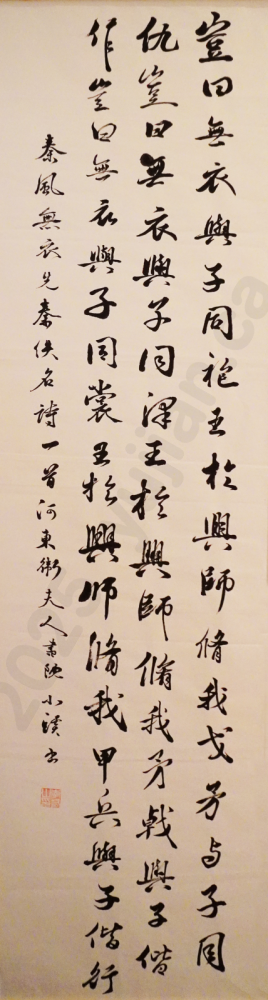 豈曰無衣與子同袍王於興師脩我戈矛與子同
仇豈曰無衣與子同澤王於興師脩我矛戟與子偕
作豈曰無衣與子同裳王於興師脩我甲兵與子偕行
秦風無衣先秦佚名詩一首河東衛夫人書院小溪書